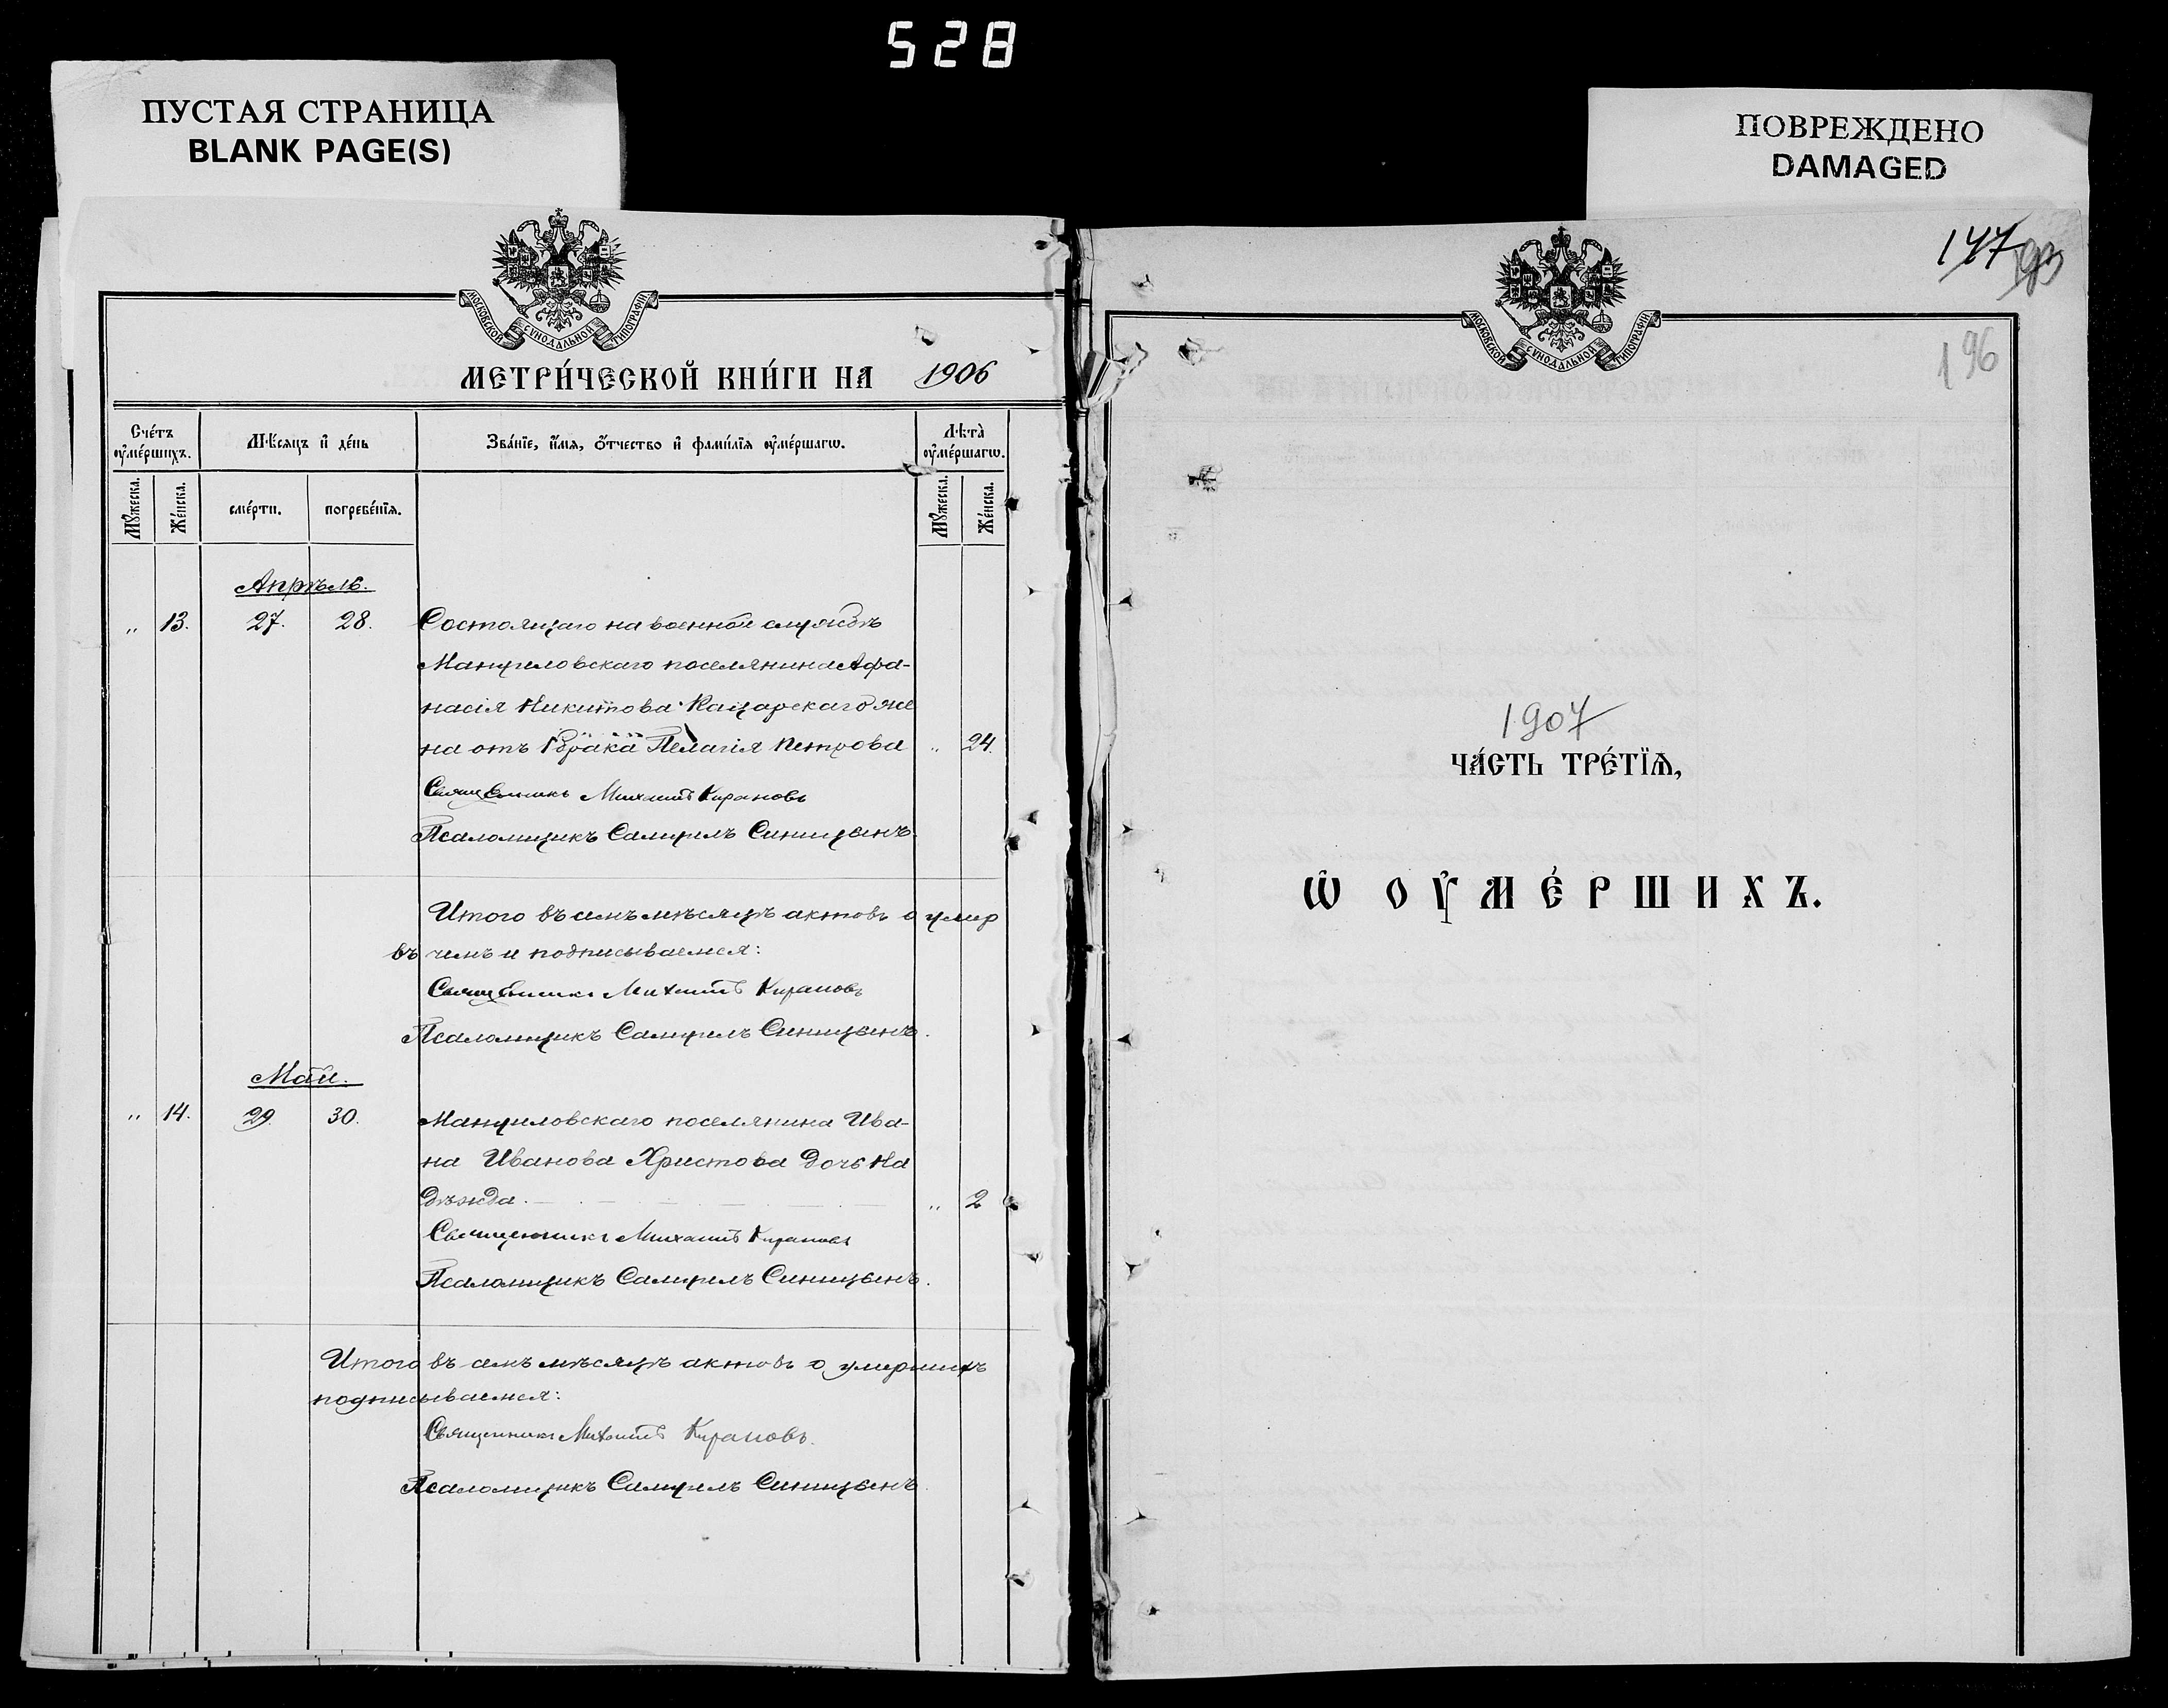 528
ПУСТАЯ СТРАНИЦА
BLANK PAGE(S)
МОСКОВСКОЙ СУНОДАЛЬНОЙ ТИПОГРАФІИ
МЕТРИ́ЧЕСКОЙ КНИ́ГИ НА 1906
Сче́тъ оу҆ме́ршихъ.
Мѣ́сяцъ и҆ де́нь
Зва́нїе, и҆́мя, ѻ҆́тчество и҆ фами́лїя оу҆ме́ршагѡ.
Лѣта̀ оу҆ме́ршагѡ.
Мꙋ́жеска.
Же́нска.
сме́рти.
погребе́нїя.
Мꙋ́жеска.
Же́нска.
Апрѣль.
„ 13. 27. 28. Состоящаго на военной службѣ
Мануиловскаго поселянина Афа-
насія Никитова Кацарскаго же
на отъ I брака Пелагія Петрова „ 24.
Священникъ Михаилъ Кирановъ
Псаломщикъ Самуилъ Синицынъ.
Итого въ семъ мѣсяцѣ актовъ о умер
въ чемъ и подписываемся:
Священникъ Михаилъ Кирановъ
Псаломщикъ Самуилъ Синицынъ.
Май.
„ 14. 29. 30. Мануиловскаго поселянина Ива-
на Иванова Христова дочь На
дѣжда. „ 2
Священникъ Михаилъ Кирановъ
Псаломщикъ Самуилъ Синицынъ.
Итого въ семъ мѣсяцѣ актовъ о умершихъ
подписываемся:
Священникъ Михаилъ Кирановъ.
Псаломщикъ Самуилъ Синицынъ.
ПОВРЕЖДЕНО
DAMAGED
147
МОСКОВСКОЙ СУНОДАЛЬНОЙ ТИПОГРАФІИ
196
1907
ЧА́СТЬ ТРЕ́ТЇѦ,
Ѡ҆ ОУ҆МЕ́РШИХЪ.